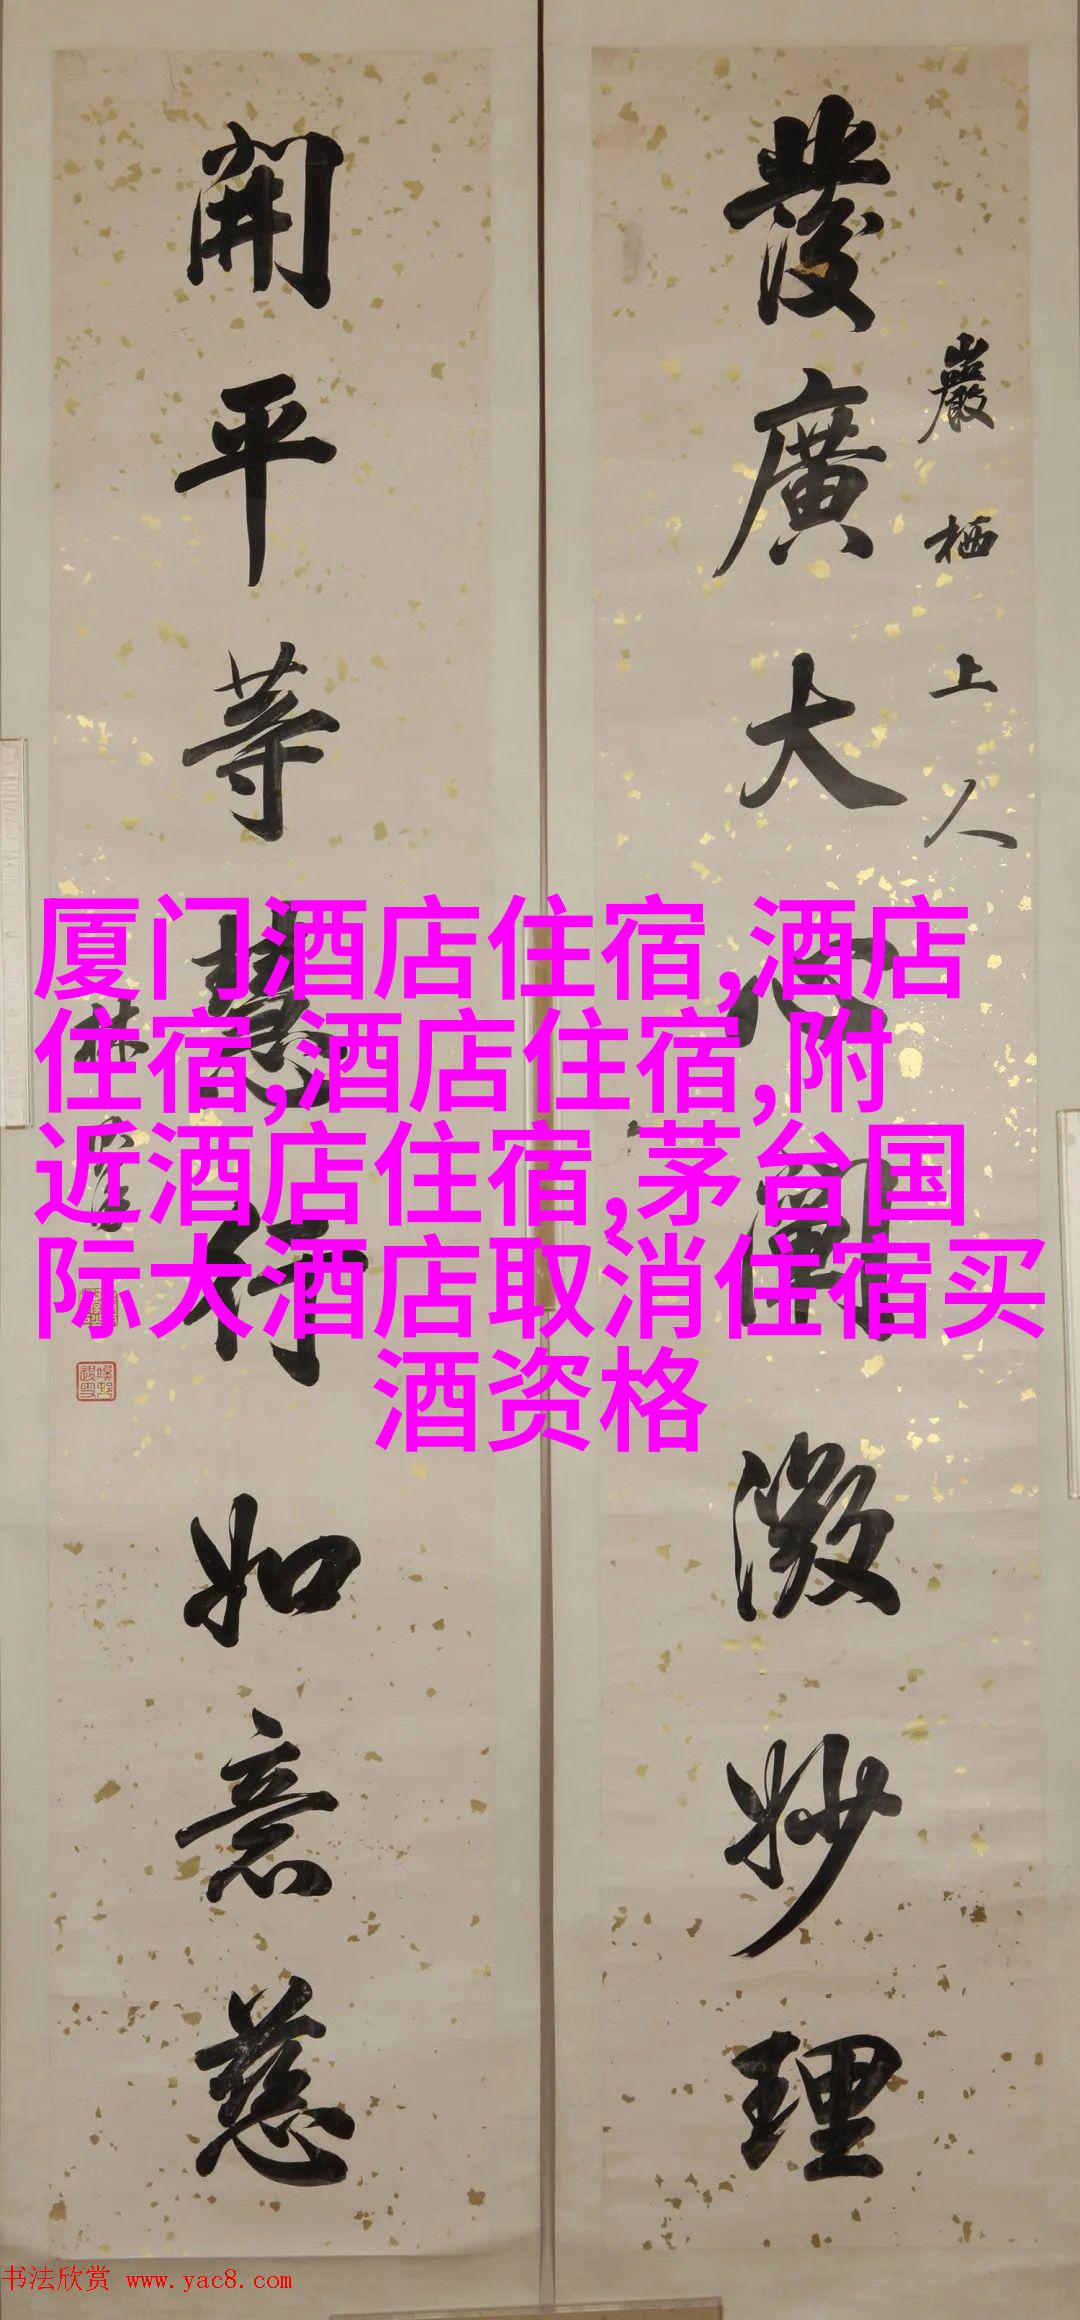 發廣大心闡微妙理
巖栖上人
開平等慧行如意慈
林
厦门酒店住宿,酒店
住宿,酒店住宿,附
近酒店住宿,茅台国
际大酒店取消住宿买
酒资格
书法欣赏 www.yac8.com